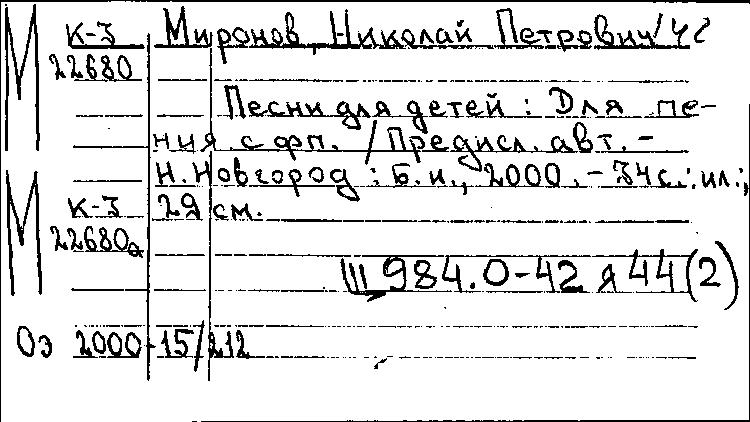 М К-3 Миронов, Николай Петрович
22680
Песни для детей : Для пе-
ния с фп. / Предисл. авт. -
Н.Новгород : Б.и., 2000. - 34с.:ил.;
М К-3 29 см.
22680а
Щ984.0-42 я44(2)
Оэ 2000-15/212